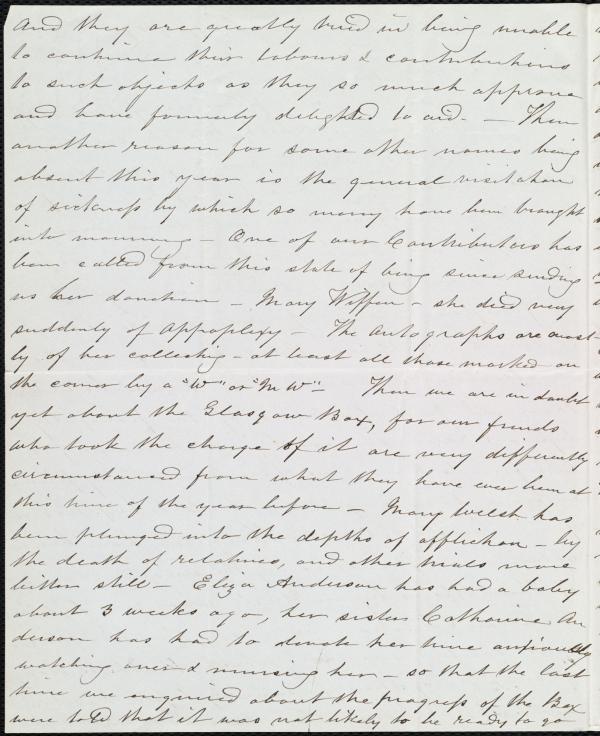 and they are greatly tried in being unable
to continue their labours & contributions
to such objects as they so much approve
and have formerly delighted to aid. — Then
another reason for some other names being
absent this year is the general visitation
of sickness by which so many have been brought
into mourning — One of our Contributors has
been called from this state of being since sending
us her donation — Mary Wiffen — she died very
suddenly of Appoplexy — The Autographs are most-
ly of her collecting — at least all those marked on
the corner by a "W" or "M W" — Then we are in doubt
yet about the Glasgow Box, for our friends
who took the charge of it are very differently
circumstanced from what they have ever been at
this time of the year before — Mary Welsh has
been plunged into the depths of affliction — by
the death of relatives, and other trials more
bitter still — Eliza Anderson has had a baby
about 3 weeks ago, her sister Catharine An
derson has had to devote her time anxiously
watching over & nursing her — so that the last
time we enquired about the progress of the Box
were told that it was not likely to be ready to go